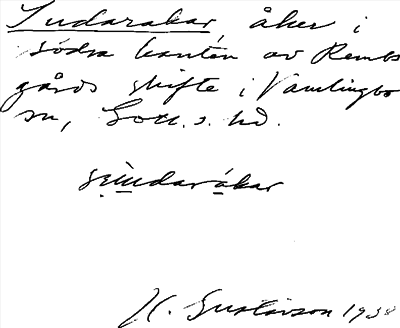 Sudarakar, åker i
södra kanten av Rembs
gårds skifte i Vamlingbo
sn, Gotl. s. hd.
sæ̈indarákar
H. Gustavson 1938